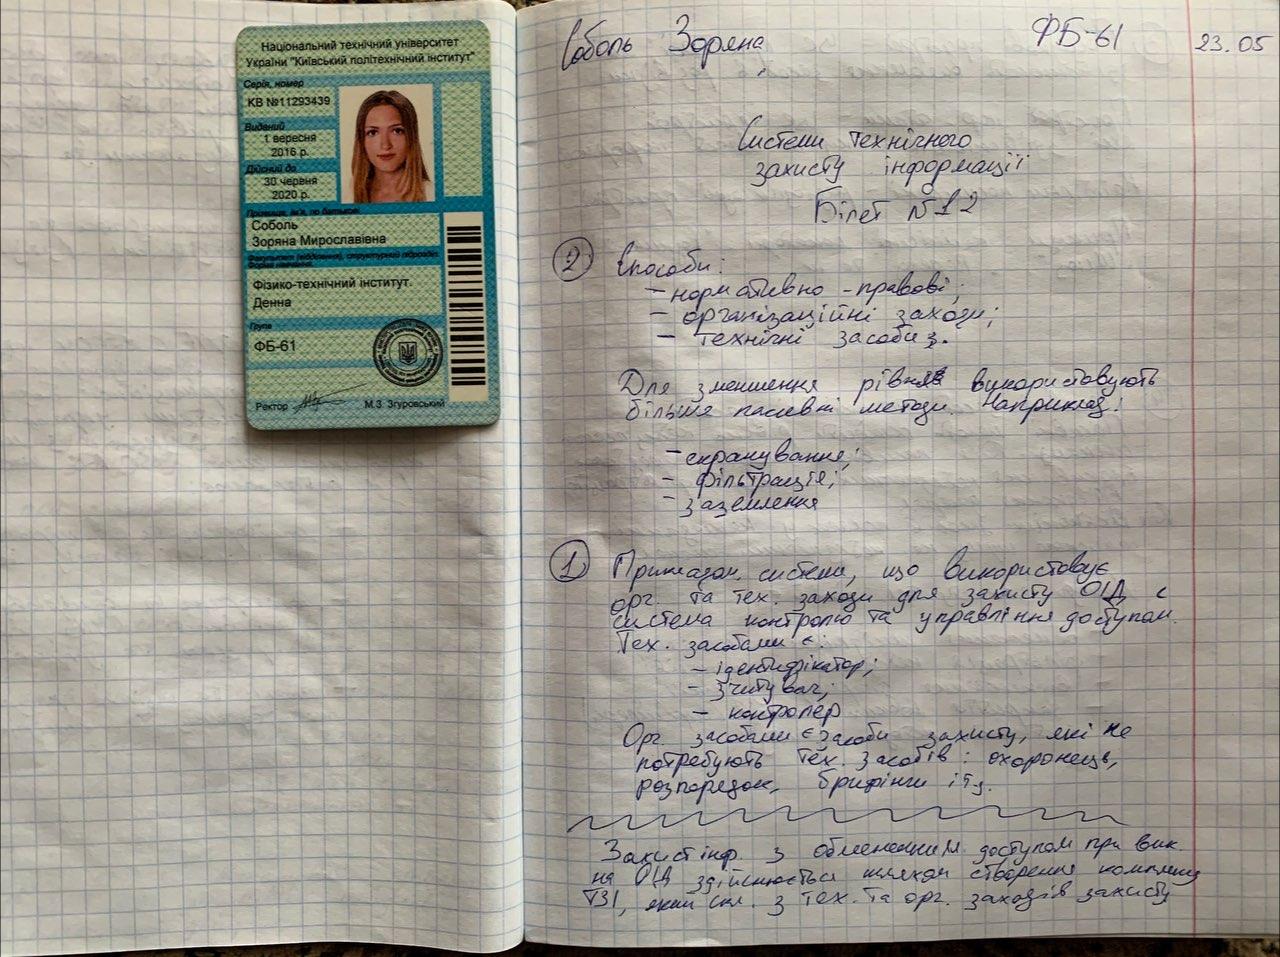 Національний технічний університет
України "Київський політехнічний інститут"
Серія, номер
КВ №11293439
Виданий
1 вересня
2016 р.
Дійсний до
30 червня
2020 р.
Прізвище, ім'я, по батькові
Соболь
Зоряна Мирославівна
Факультет (відділення), структурний підрозділ.
Форма навчання.
Фізико-технічний інститут.
Денна
Група
ФБ-61
Ректор М.З. Згуровський
Соболь Зоряна ФБ-61 23.05
Системи технічного
захисту інформації
Білет №12
2 Способи:
- нормативно-правові;
- організаційні заходи;
- технічні засоби з.
Для зменшення рівня використовують
більше пасивні методи. Наприклад:
- екранування;
- фільтрація;
- заземлення
1 Прикладом системи, що використовує
орг. та тех. заходи для захисту ОІД є
система контролю та управління доступом.
Тех. засобами є:
- ідентифікатор;
- зчитувач;
- контролер
Орг засобами є засоби захисту, які не
потребують тех. засобів: охоронець,
розпорядок, брифінги і т.д.
Захист інф. з обмеженим доступом при вик.
на ОІД здійснюється шляхом створення комплексу
ТЗІ, який скл. з тех. та орг. заходів захисту